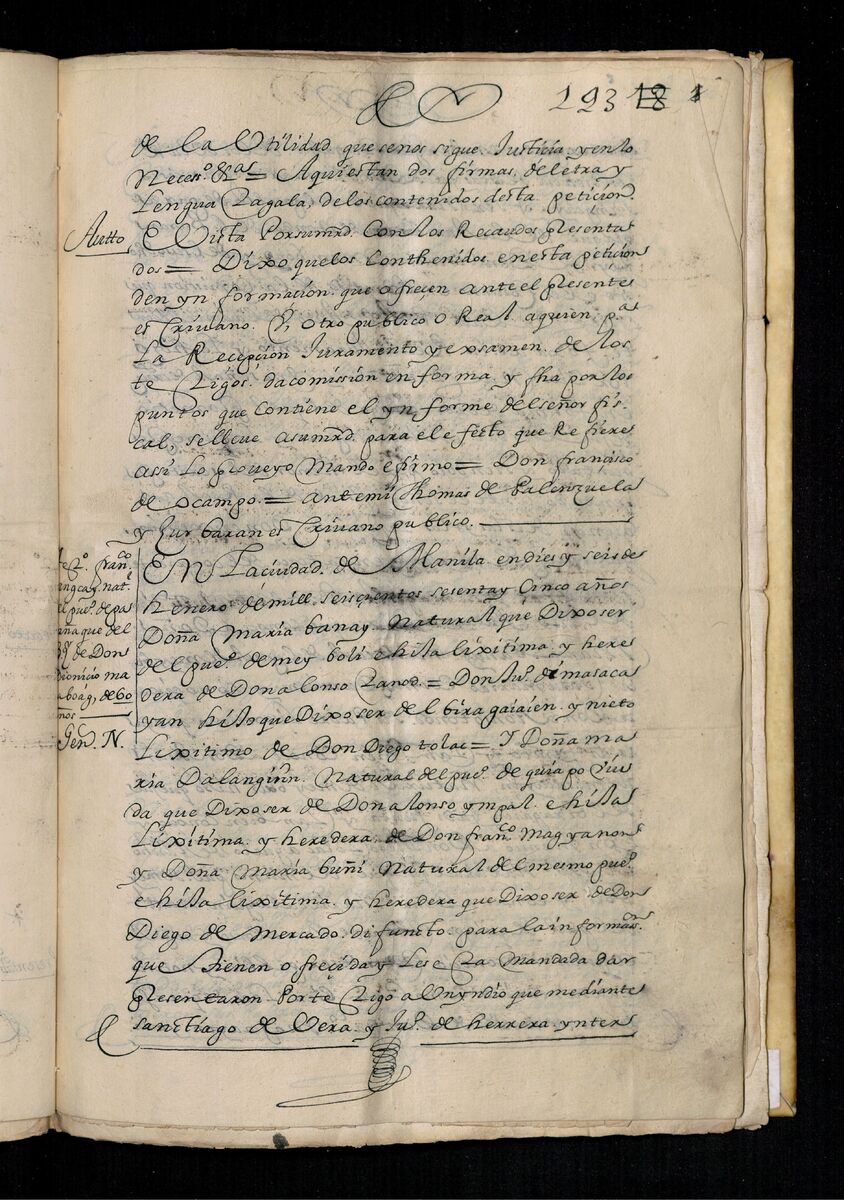 193 18
de la Utilidad que se nos sigue Justicia y en lo
Necess.º &.ª = Aqui estan dos firmas, de letra y
Lengua Tagala, de los contenidos desta peticion.
Autto
E Vista Por su mrd. Con los Recaudos Presenta
dos = Dixo que los Conthenidos en esta peticion
den ynformacion que ofreçen ante el Presente
esCrivano. O otro publico o Real a quien p.ª
La Recepcion Juramento y exsamen de los
testigos da comission en forma y fha por los
puntos que Contiene el ynforme del señor fis
cal, se lleve a su mrd. para el efecto que Refiere
assi Lo Proveyo Mando e firmo = Don françisco
de Ocampo = ante mi Thomas de Palenzuela
y Zurbaran esCrivano publico.
t.º fran.co
ngcay nat.l
el pue.º de pa
ña que del
de Don
Dionicio ma
aboag, de 60
años
Gen.l N.
EN La ciudad de Manila en dies y seis de
henero de mill seisçientos sesenta y Cinco años
Doña Maria banay Natural que Dixo ser
del pue.º de meyboli e hija lixitima y here
dera de Don alonso = Don Ju.º dimasaca
yan hijo que Dixo ser del biragaiaien y nieto
Lixitimo de Don Diego tolac = Y Doña ma
ria Dalanginn Natural del pue.º de quiapo Viu
da que Dixo ser de Don alonso ympal e hija
Lixitima y heredera de Don fran.co magyanon
y Doña Maria buñi Natural del mesmo pue.º
e hija lixitima y heredera que Dixo ser de Don
Diego de Mercado difuncto para la informas.on
que tienen ofreçida y Les esta Mandada dar
Presentaron Por testigo a Un yndio que mediante
sanctiago de Vera y Ju.º de herrera ynter